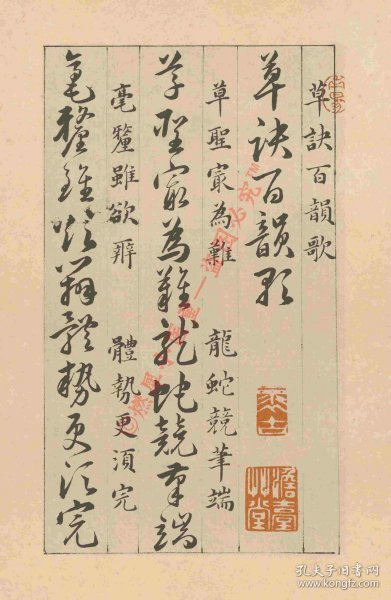 草訣百韻歌
草訣百韻歌
草聖㝡為難 龍蛇競筆端
草聖㝡為難龍蛇競筆端
毫釐雖欲辨 體勢更須完
毫釐雖欲辨體勢更須完
盗图必究
孔夫子旧书网
www.kongfz.com